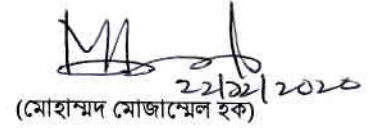 22/02/2020
(মোহাম্মদ মোজাম্মেল হক)